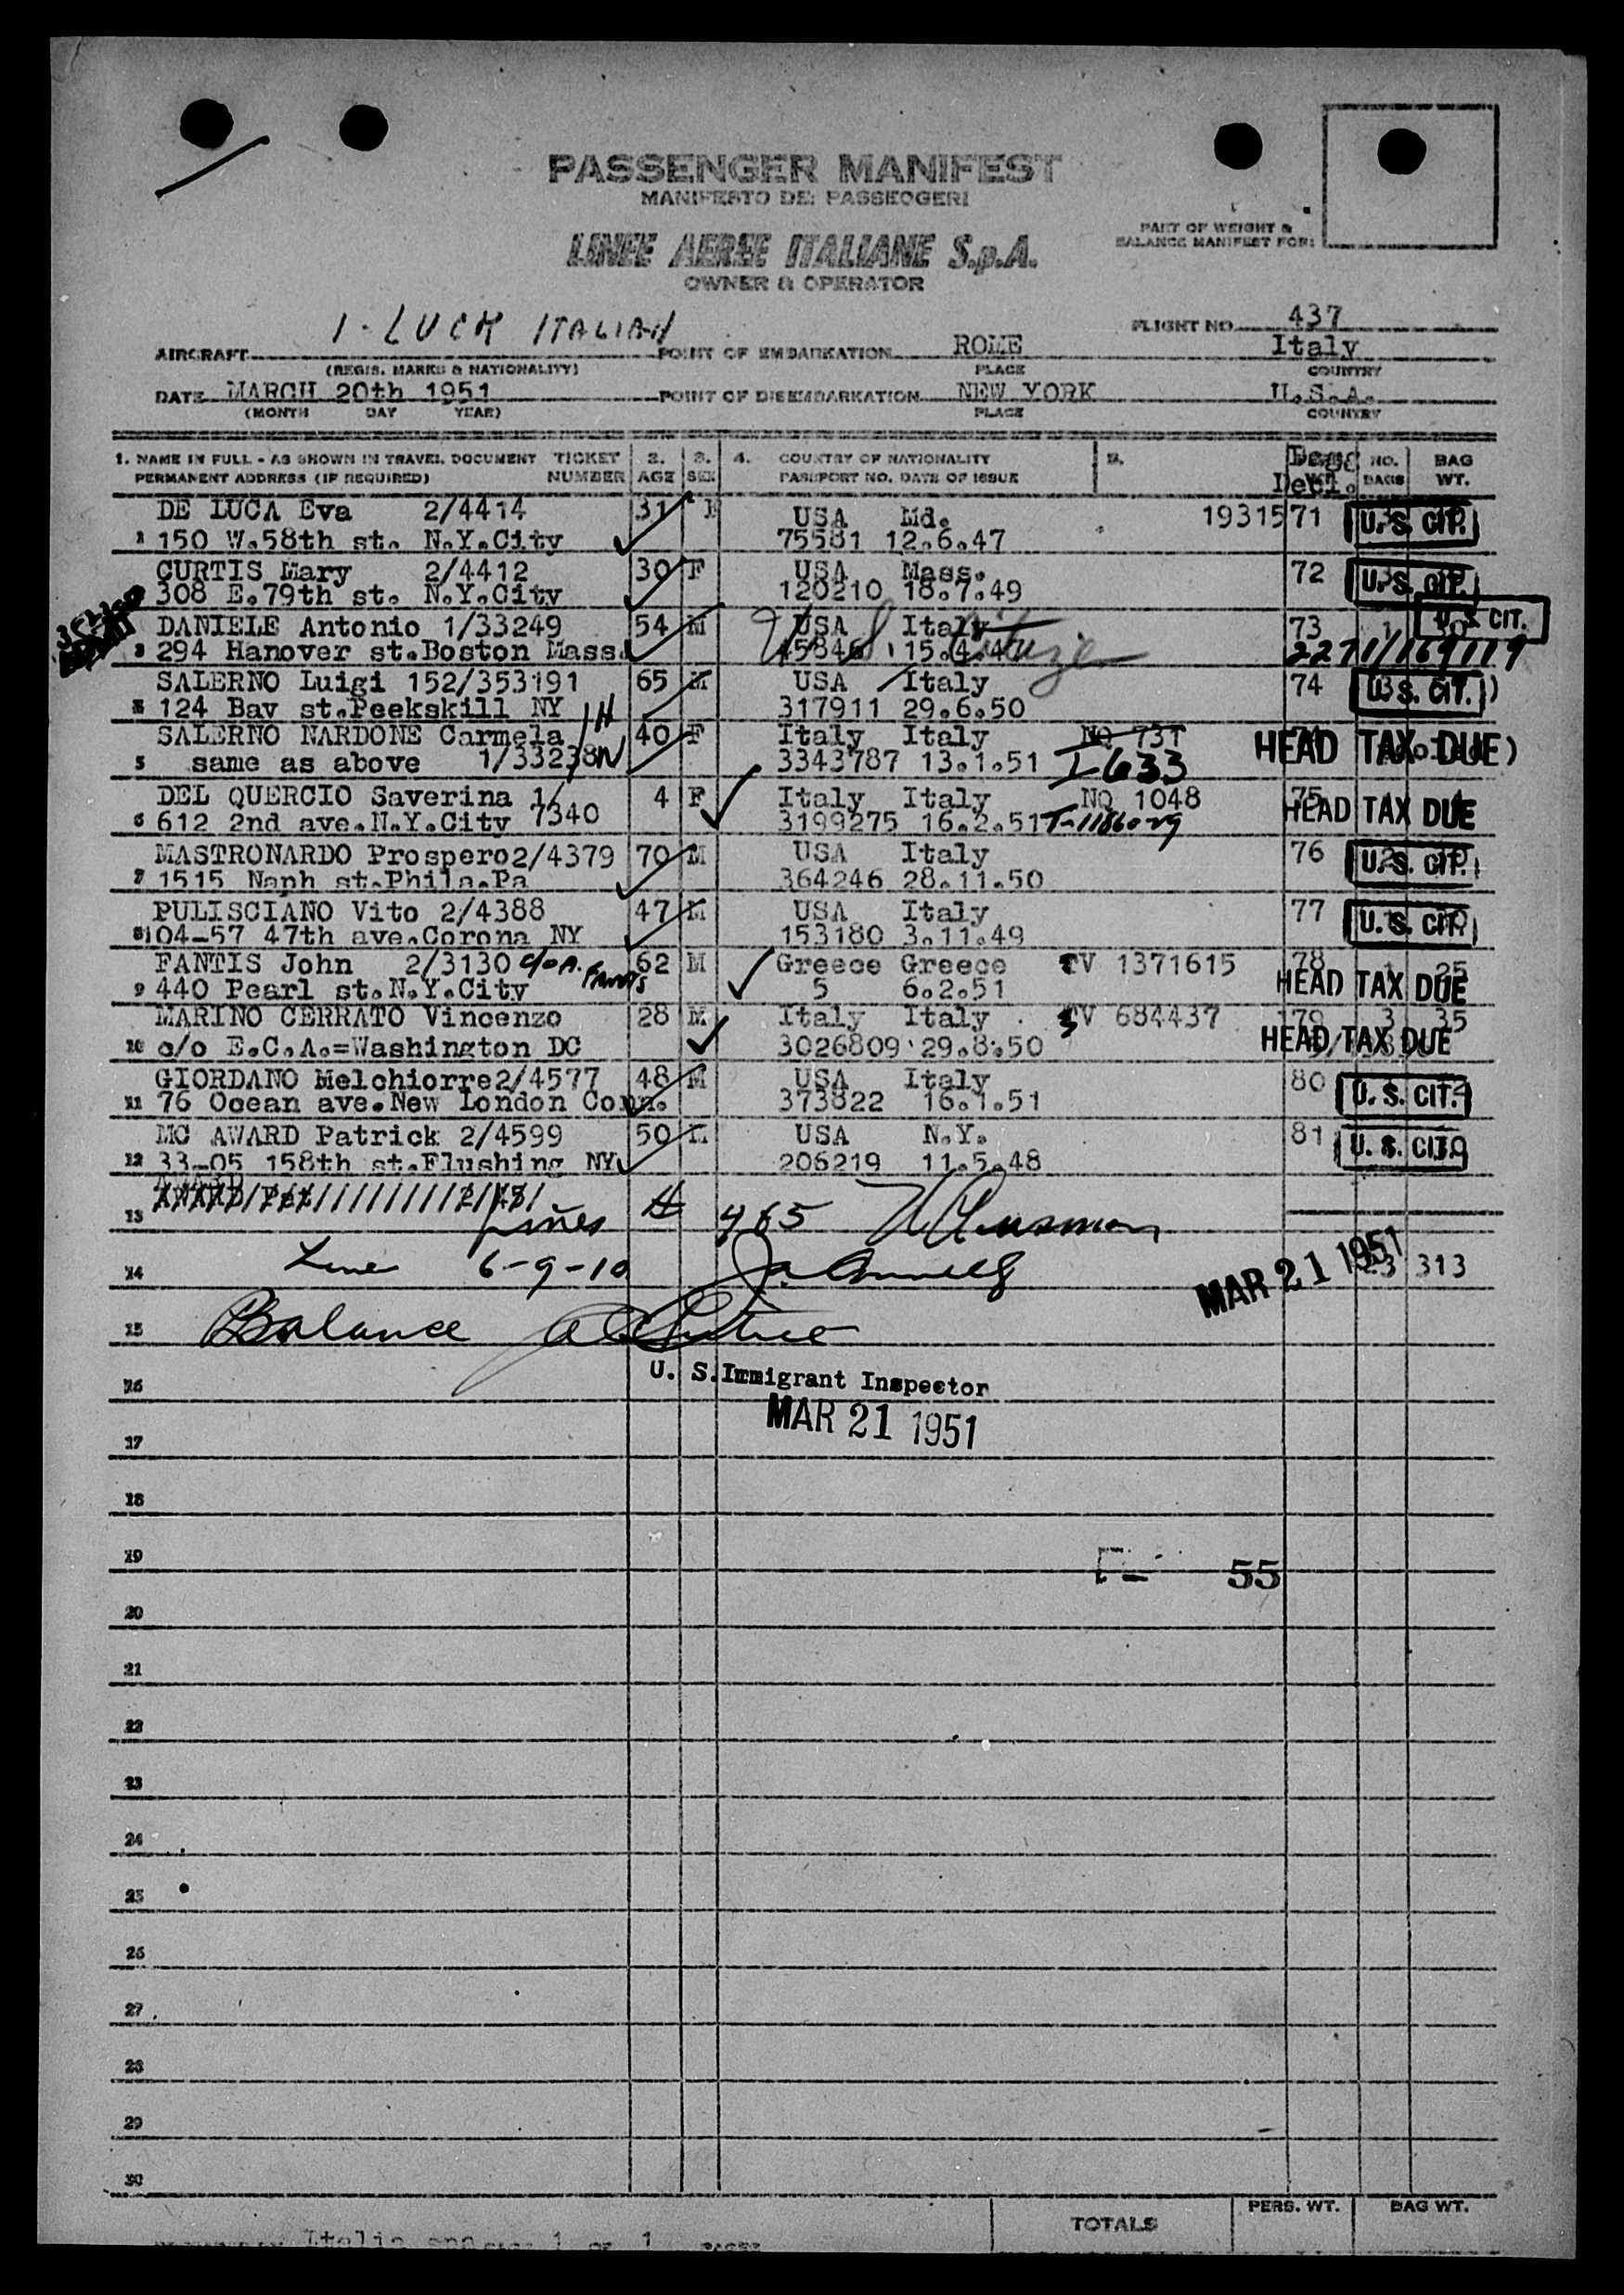 PASSENGER MANIFEST
MANIFESTO DEI PASSEGGERI
LINEE AEREE ITALIANE S.p.A.
OWNER & OPERATOR
PART OF WEIGHT &
BALANCE MANIFEST FOR:
FLIGHT NO. 437
AIRCRAFT I-LUCK ITALIAN POINT OF EMBARKATION ROME Italy
(REGIS. MARKS & NATIONALITY) PLACE COUNTRY
DATE MARCH 20th 1951 POINT OF DISEMBARKATION NEW YORK U.S.A.
(MONTH DAY YEAR) PLACE COUNTRY
1. NAME IN FULL - AS SHOWN IN TRAVEL DOCUMENT TICKET 2. 3. 4. COUNTRY OF NATIONALITY 5. NO. BAG
PERMANENT ADDRESS (IF REQUIRED) NUMBER AGE SEX PASSPORT NO. DATE OF ISSUE Decl. BAGS WT.
DE LUCA Eva 2/4414 31 F USA Md. 1931571 U.S. CIT.
1 150 W.58th st. N.Y.City 75581 12.6.47
CURTIS Mary 2/4412 30 F USA Mass. 72 U.S. CIT.
308 E.79th st. N.Y.City 120210 18.7.49
DANIELE Antonio 1/33249 54 M USA Italy 73 U.S. CIT.
3 294 Hanover st.Boston Mass. 2271/169119
SALERNO Luigi 152/353191 65 M USA Italy 74 U.S. CIT.
124 Bay st.Peekskill NY 317911 29.6.50
SALERNO NARDONE Carmela 40 F Italy Italy NQ 731 HEAD TAX DUE
5 same as above 1/33238 3343787 13.1.51 I-633
DEL QUERCIO Saverina 1/ 4 F Italy Italy NQ 1048 75 HEAD TAX DUE
6 612 2nd ave.N.Y.City 7340 3199275 16.2.51
MASTRONARDO Prospero 2/4379 70 M USA Italy 76 U.S. CIT.
7 1515 Naph st.Phila.Pa 364246 28.11.50
PULISCIANO Vito 2/4388 47 M USA Italy 77 U.S. CIT.
8 104-57 47th ave.Corona NY 153180 3.11.49
FANTIS John 2/3130 c/o A. Fantis 62 M Greece Greece TV 1371615 78 25 HEAD TAX DUE
9 440 Pearl st.N.Y.City 5 6.2.51
MARINO CERRATO Vincenzo 28 M Italy Italy TV 684437 179 3 35
10 c/o E.C.A.=Washington DC 3026809 29.8.50 HEAD TAX DUE
GIORDANO Melchiorre 2/4577 48 M USA Italy 80 U.S. CIT.
11 76 Ocean ave.New London Conn. 373822 16.1.51
MC AWARD Patrick 2/4599 50 USA N.Y. 81 U.S. CIT.
12 33-05 158th st.Flushing NY 206219 11.5.48
13
14 Line 6-9-10 313
MAR 21 1951
15 Balance
U. S. Immigrant Inspector
16
MAR 21 1951
17
18
19
55
20
21
22
23
24
25
26
27
28
29
30
TOTALS PERS. WT. BAG WT.